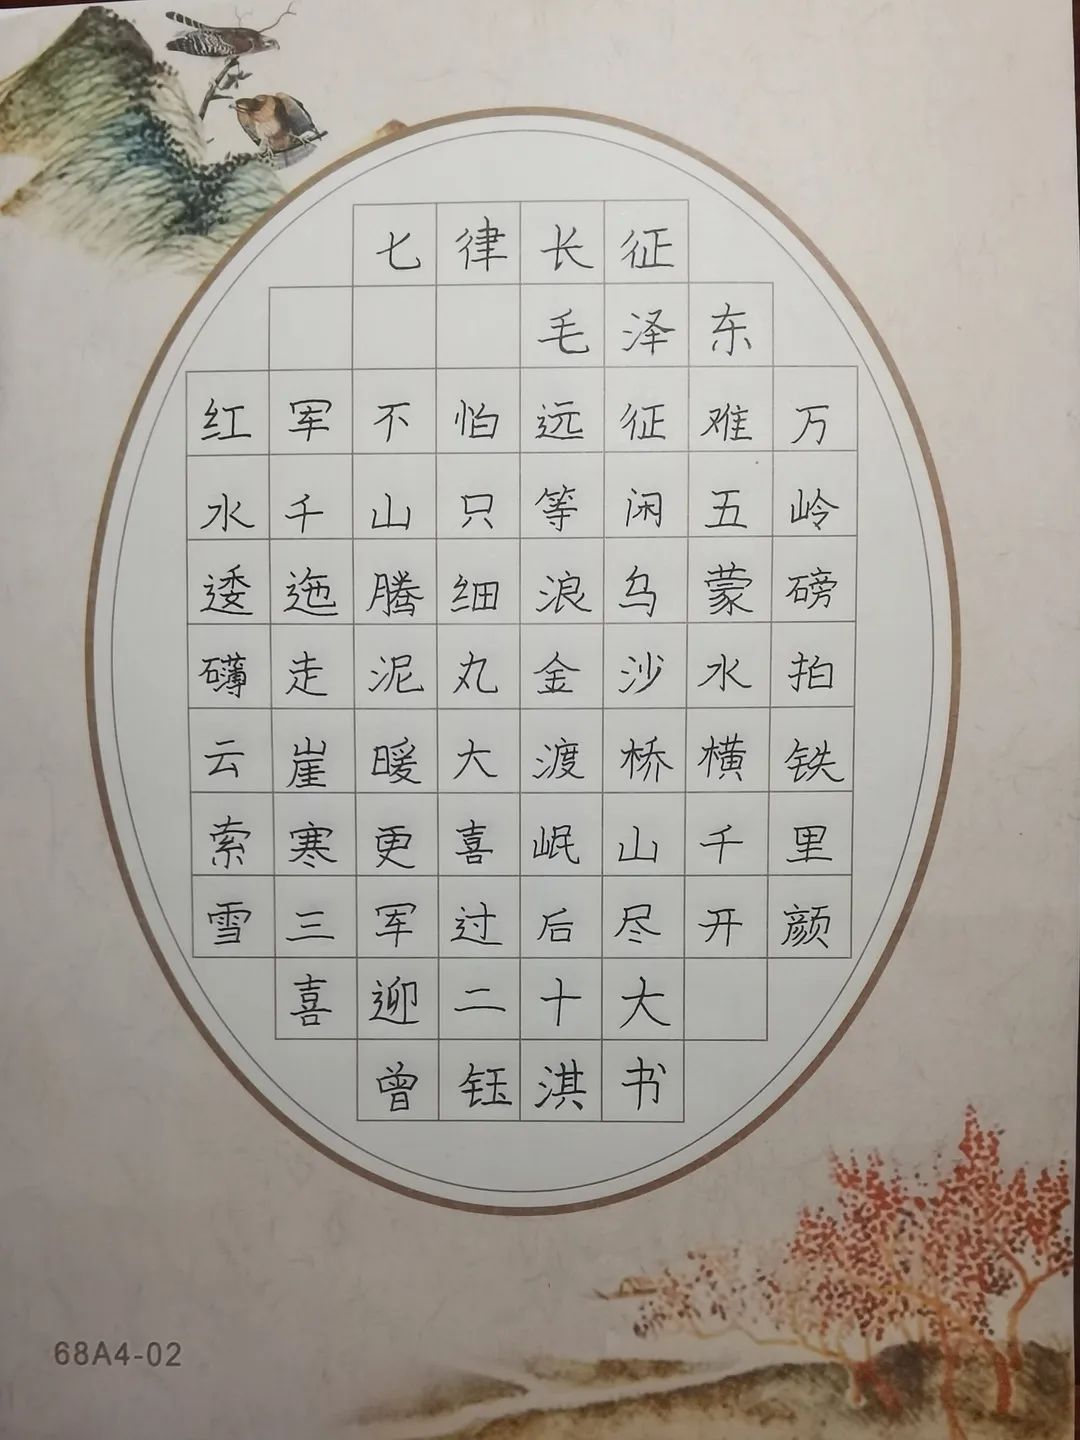 七律长征
毛泽东
红军不怕远征难万
水千山只等闲五岭
逶迤腾细浪乌蒙磅
礴走泥丸金沙水拍
云崖暖大渡桥横铁
索寒更喜岷山千里
雪三军过后尽开颜
喜迎二十大
曾钰淇书
68A4-02